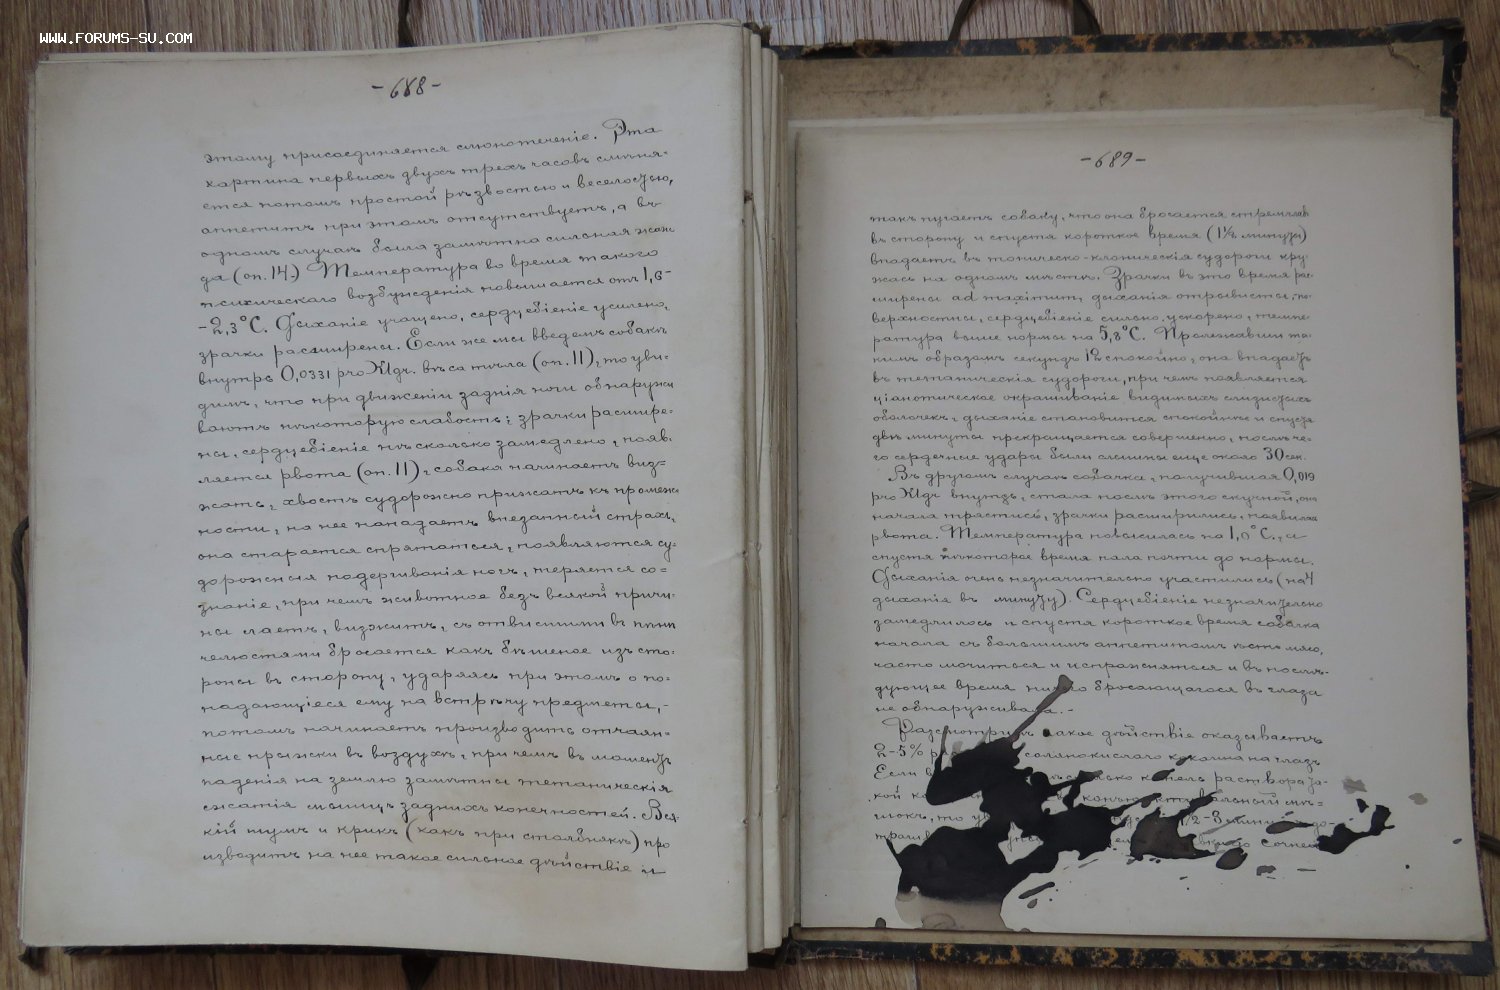 WWW.FORUMS-SU.COM
-688-
этому присоединяется слюнотеченіе. Эта
картина первыхъ двухъ трехъ часовъ смѣня-
ется потомъ простой рѣзвостью и веселостью,
аппетитъ при этомъ отсутствуетъ, а въ
одномъ случаѣ была замѣтна сильная жаж
да (оп. 14) Температура во время такого
психическаго возбужденія повышается отъ 1,6-
-2,3°C. Дыханіе учащено, сердцебіеніе усилено,
зрачки расширены. Если же мы введемъ собакѣ
внутрь 0,0331 pro Klgr. вѣса тѣла (оп. 11), то уви-
димъ, что при движеніи заднія ноги обнаружи
ваютъ нѣкоторую слабость; зрачки расшире-
ны, сердцебіеніе нѣсколько замедлено, появ-
ляется рвота (оп. 11), собака начинаетъ виз-
жать, хвостъ судорожно прижатъ къ промеж
ности, на нее нападаетъ внезапный страхъ,
она старается спрятаться, появляются су-
дорожныя подергиванія ногъ, теряется со-
знаніе, при чемъ животное безъ всякой причи-
ны лаетъ, визжитъ, съ отвисшими въ пѣнѣ
челюстями бросается какъ бѣшеное изъ сто-
роны въ сторону, ударяясь при этомъ о по-
падающіеся ему на встрѣчу предметы,-
потомъ начинаетъ производить отчаян-
ные прыжки въ воздухѣ, при чемъ въ моментъ
паденія на землю замѣтны тетаническія
сжатія мышцъ заднихъ конечностей. Вся-
кій шумъ и крикъ (какъ при столбнякѣ) про
изводитъ на нее такое сильное дѣйствіе и
-689-
такъ пугаетъ собаку, что она бросается стремглавъ
въ сторону и спустя короткое время (1½ минуты)
впадаетъ въ тоническо-клоническія судороги кру
жась на одномъ мѣстѣ. Зрачки въ это время рас
ширены ad maximum, дыханія отрывисты, по-
верхностны, сердцебіеніе сильно ускорено, темпе-
ратура выше нормы на 5,8°C. Пролежавши та-
кимъ образомъ секундъ спокойно, она впадаетъ
въ тетаническія судороги, при чемъ появляется
ціанотическое окрашиваніе видимыхъ слизистыхъ
оболочекъ, дыханіе становится спокойнѣе и спустя
двѣ минуты прекращается совершенно, послѣ че-
го сердечные удары были слышны еще около 30 сек.
Въ другомъ случаѣ собачка, получившая 0,019
pro Klgr внутрь, стала послѣ этого скучной, она
начала трястись, зрачки расширились, появилась
рвота. Температура повысилась на 1,0°C., а
спустя нѣкоторое время пала почти до нормы.
Дыханія очень незначительно участились (на 4
дыханія въ минуту). Сердцебіеніе незначительно
замедлилось и спустя короткое время собачка
начала съ большимъ аппетитомъ ѣсть мясо,
часто мочиться и испражняться и въ послѣ-
дующее время бросающагося въ глаза
не обнаруживала.-
какое дѣйствіе оказываетъ
2-5% солянокислаго кокаина на глазъ
Если капель раствора
кой конъюнктивальный мѣ-
шокъ, то 1/2-3 минуты
cornea